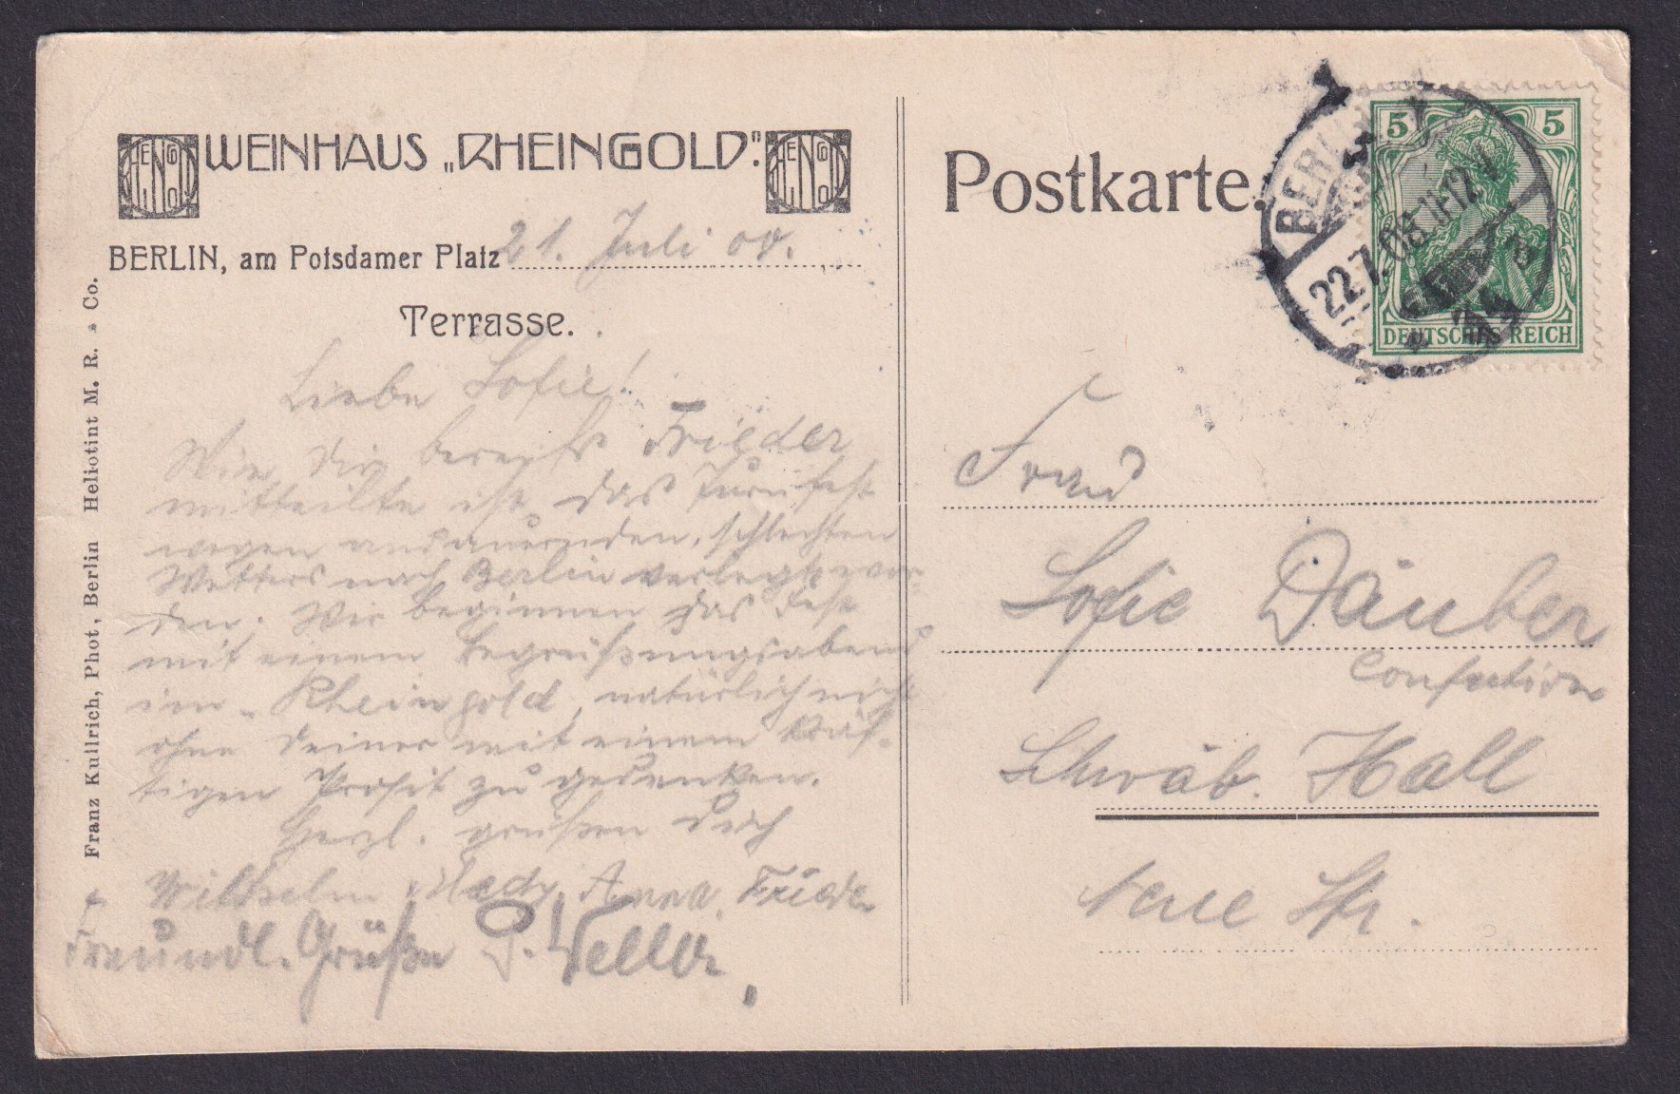 WEINHAUS „RHEINGOLD".
BERLIN, am Potsdamer Platz 21. Juli 08.
Terrasse.
Liebe Sofie!
Wie Dir bereits Frieder
mitteilte ist das Turnfest
wegen andauernden, schlechten
Wetters nach Berlin verlegt wor-
den. Wir beginnen das Fest
mit einem Begrüßungsabend
im „Rheingold, natürlich nicht
ohne Deiner mit einem kräf-
tigen Prosit zu gedenken.
Herzl. grüßen Dich
Wilhelm, Hedy, Anna, Frieder
Freundl. Grüße P. Weller
Franz Kullrich, Phot, Berlin Heliotint M. R. & Co.
Postkarte.
5 5
DEUTSCHES REICH
BERLIN
22.7.08.11-12V
Frau
Sofie Däuber
Confection
Schwäb. Hall
neue Str.